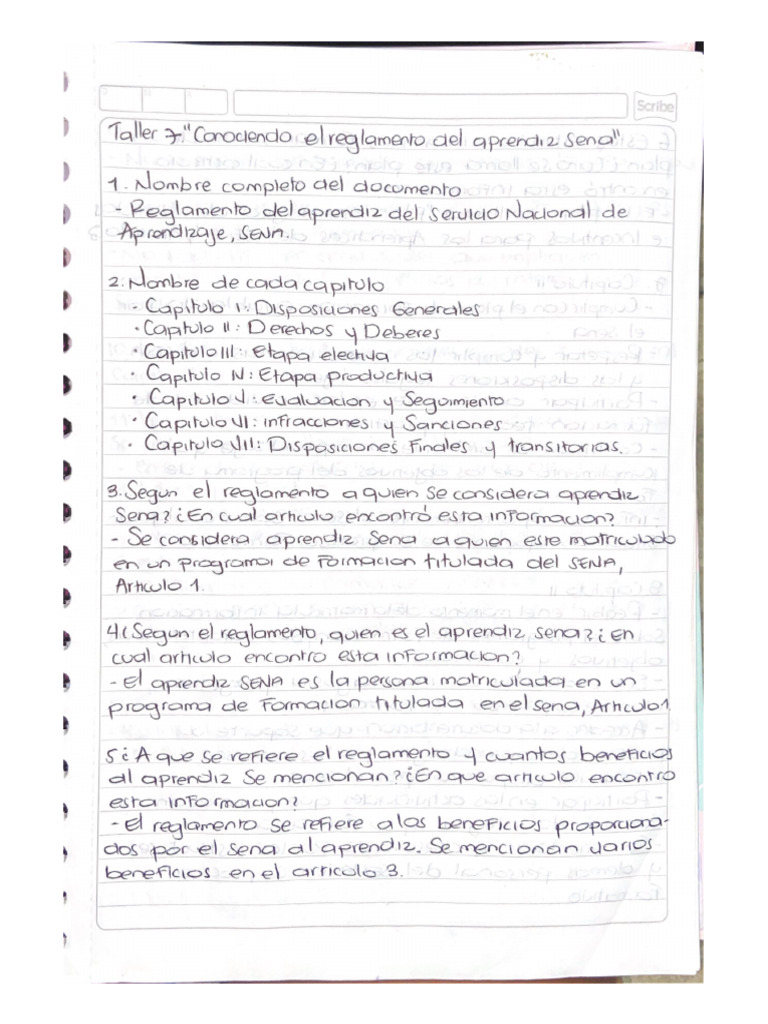 Scribe
Taller 7. "Conociendo el reglamento del aprendiz Sena"
1. Nombre completo del documento
- Reglamento del aprendiz del Servicio Nacional de
Aprendizaje, SENA.
2. Nombre de cada capitulo
- Capitulo I: Disposiciones Generales
• Capitulo II: Derechos y Deberes
• Capitulo III: Etapa electiva
• Capitulo IV: Etapa productiva
• Capitulo V: Evaluacion y Seguimiento
• Capitulo VI: infracciones y Sanciones
• Capitulo VII: Disposiciones Finales y transitorias.
3. Segun el reglamento a quien se considera aprendiz
Sena? ¿En cual articulo encontró esta informacion?
- Se considera aprendiz Sena a quien este matriculado
en un programa de Formacion titulada del SENA,
Articulo 1.
4. ¿Segun el reglamento, quien es el aprendiz sena? ¿En
cual articulo encontro esta informacion?
- El aprendiz SENA es la persona matriculada en un
programa de Formacion titulada en el sena, Articulo 1.
5 ¿A que se refiere el reglamento y cuantos beneficios
al aprendiz Se mencionan? ¿En que articulo encontro
esta informacion?
- El reglamento se refiere a los beneficios proporciona-
dos por el sena al aprendiz. Se mencionan varios
beneficios en el articulo 3.